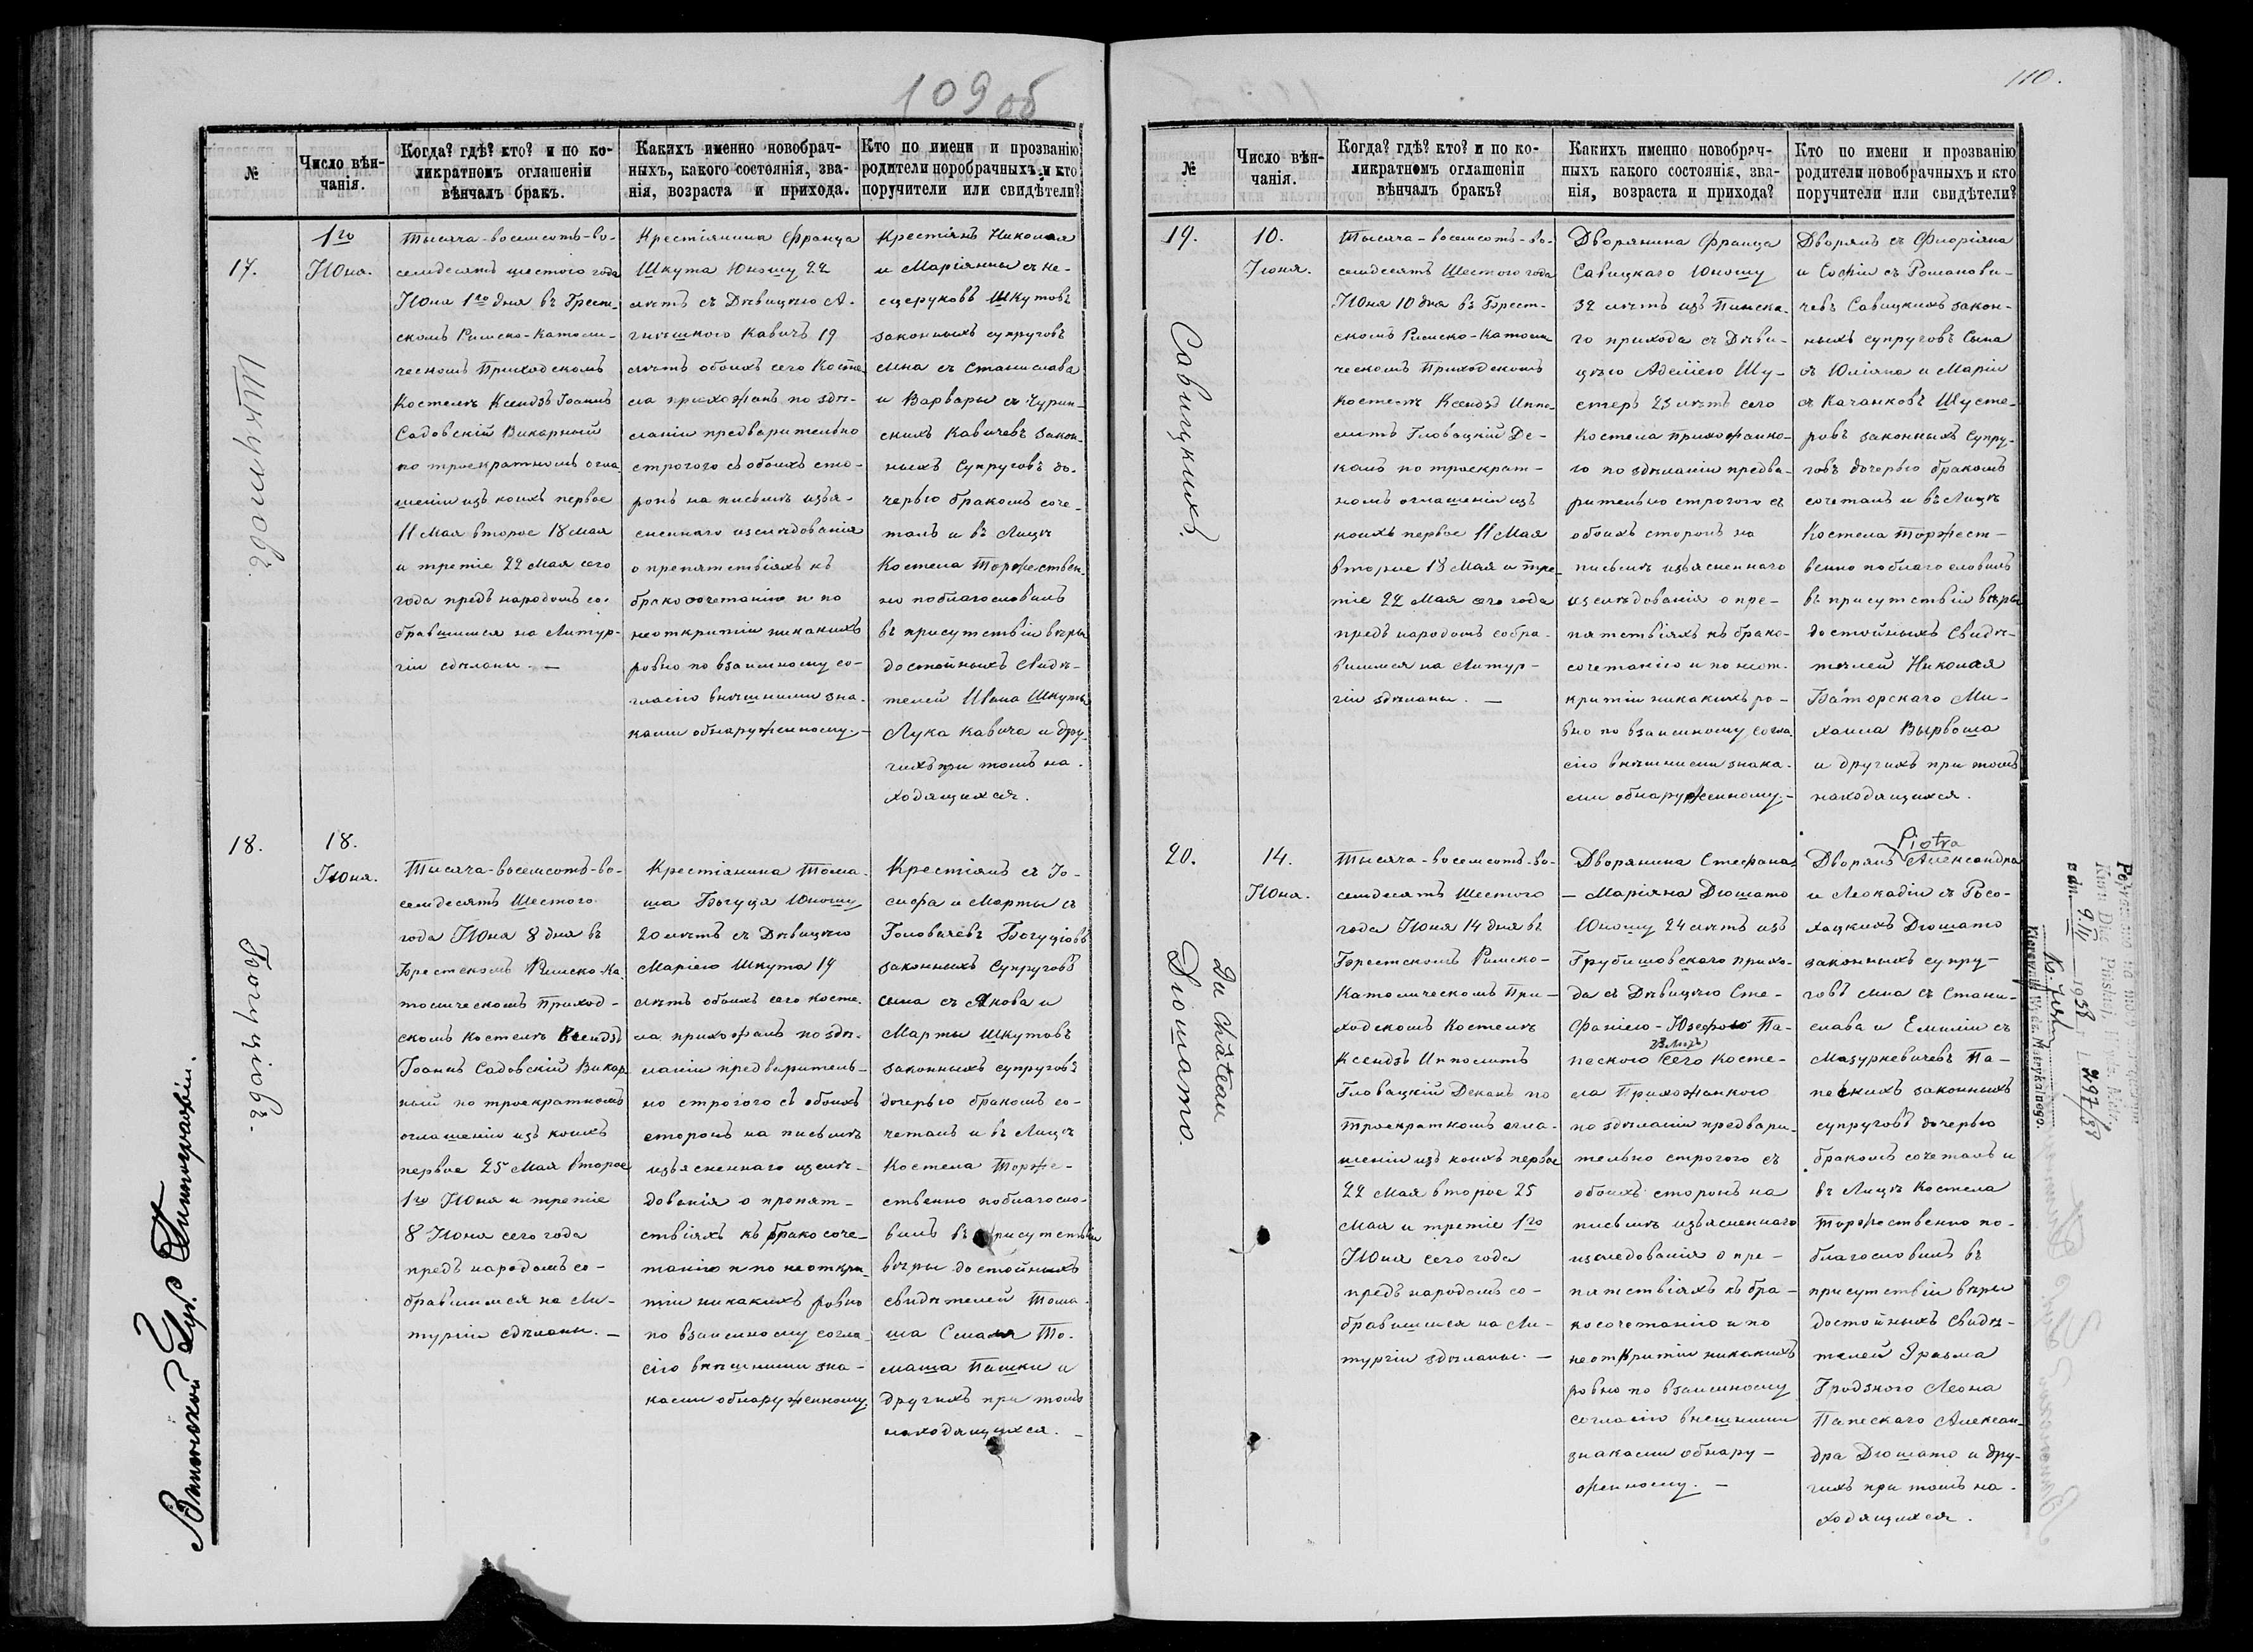 109 об
№
Число вѣн-
чанія.
Когда? гдѣ? кто? и по ко-
ликратномъ оглашеніи
вѣнчалъ бракъ.
Какихъ именно новобрач-
ныхъ, какого состоянія, зва-
нія, возраста и прихода.
Кто по имени и прозванію
родители новобрачныхъ и кто
поручители или свидѣтели?
17.
Шкутовъ.
1го
Июня.
Тысяча-восемсотъ-во-
семдесятъ шестого года
Июня 1го дня въ Брест-
скомъ Римско-Католи-
ческомъ Приходскомъ
Костелѣ Ксендзъ Іоаннъ
Садовскій Викарный
по троекратномъ огла-
шеніи изъ коихъ первое
11 Мая второе 18 мая
и третіе 22 Мая сего
года предъ народомъ со-
бравшимся на Литур-
гіи сдѣланы. —
Крестіянина Франца
Шкута Юношу 22
лѣтъ съ Дѣвицею А-
гнѣшкою Кавичъ 19
лѣтъ обоихъ сего Косте-
ла прихожанъ по здѣ-
ланіи предварительно
строгого съ обоихъ сто-
ронъ на письмѣ изъя-
сненнаго изслѣдованія
о препятствіяхъ къ
бракосочетанію и по
неоткритіи никакихъ
ровно по взаимному со-
гласію внѣшними зна-
ками обнаруженному. —
Крестіянъ Николая
и Маріянны съ Не-
сцеруковъ Шкутовъ
законныхъ супруговъ
сына съ Станислава
и Варвары съ Чурин-
скихъ Кавичевъ закон-
ныхъ Супруговъ до-
черью бракомъ соче-
талъ и въ Лицѣ
Костела Торжествен-
но поблагословилъ
въ присутствіи вѣры
достойныхъ Свидѣ-
телей Ивана Шкуты
Лука Кавича и дру-
гихъ при томъ на-
ходящихся.
18.
Богуціовъ.
18.
Июня.
Тысяча-восемсотъ-во-
семдесятъ Шестого
года Июня 8 дня въ
Брестскомъ Римско-Ка-
толическомъ Приход-
скомъ Костелѣ Ксендзъ
Іоаннъ Садовскій Викар-
ный по троекратномъ
оглашеніи изъ коихъ
первое 25 Мая второе
1го Июня и третіе
8 Июня сего года
предъ народомъ со-
бравшимся на Ли-
тургіи сдѣланы. —
Крестіянина Тома-
ша Богуця Юношу
20 лѣтъ съ Дѣвицею
Маріею Шкута 19
лѣтъ обоихъ сего косте-
ла прихожанъ по здѣ-
ланіи предваритель-
но строгого съ обоихъ
сторонъ на письмѣ
изъясненнаго изслѣ-
дованія о препят-
ствіяхъ къ бракосоче-
танію и по неоткри-
тіи никакихъ ровно
по взаимному согла-
сію внѣшними зна-
ками обнаруженному.
Крестіянъ съ Іо-
сифа и Марты съ
Головачевъ Богуціовъ
законныхъ Супруговъ
сына съ Якова и
Марты Шкутовъ
законныхъ супруговъ
дочерью бракомъ со-
четалъ и въ Лицѣ
Костела Торже-
ственно поблагосло-
вилъ въ присутствіи
вѣры достойныхъ
свидѣтелей Тома-
ша То-
маша Пашки и
другихъ при томъ
находящихся. —
110.
№
Число вѣн-
чанія.
Когда? гдѣ? кто? и по ко-
ликратномъ оглашеніи
вѣнчалъ бракъ?
Какихъ именно новобрач-
ныхъ какого состоянія, зва-
нія, возраста и прихода?
Кто по имени и прозванію
родители новобрачныхъ и кто
поручители или свидѣтели?
19.
Савицкихъ.
10.
Іюня.
Тысяча-восемсотъ-во-
семдесятъ Шестого года
Июня 10 дня въ Брест-
скомъ Римско-Католи-
ческомъ Приходскомъ
Костелѣ Ксендзъ Иппо-
литъ Гловацкій Де-
канъ по троекрат-
номъ оглашеніи изъ
коихъ первое 11 Мая
второе 18 Мая и тре-
тіе 22 Мая сего года
предъ народомъ собра-
вшимся на Литур-
гіи здѣланы. —
Дворянина Франца
Савицкаго Юношу
32 лѣтъ изъ Пинска-
го прихода съ Дѣви-
цею Аделіею Шу-
стеръ 23 лѣтъ сего
Костела прихожанко-
ю по здѣланіи предва-
рительно строгого съ
обоихъ сторонъ на
письмѣ изъясненнаго
изслѣдованія о пре-
пятствіяхъ къ брако-
сочетанію и по неот-
критіи никакихъ ро-
вно по взаимному согла-
сію внѣшними знака-
ми обнаруженному. —
Дворянъ съ Флоріяна
и Софіи съ Романови-
чевъ Савицкихъ закон-
ныхъ супруговъ Сына
съ Юліяна и Маріи
съ Качанковъ Шусте-
ровъ законныхъ Супру-
говъ дочерью бракомъ
сочеталъ и въ Лицѣ
Костела Торжест-
венно поблагословилъ
въ присутствіи вѣры
достойныхъ Свидѣ-
телей Николая
Баторскаго Ми-
хаила Вырвоша
и другихъ при томъ
находящихся.
20.
Дюшато.
Du Château
14.
Июня.
Тысяча-восемсотъ-во-
семдесятъ Шестого
года Июня 14 дня въ
Брестскомъ Римско-
Католическомъ При-
ходскомъ Костелѣ
Ксендзъ Ипполитъ
Гловацкій Деканъ по
троекратномъ огла-
шеніи изъ коихъ первое
22 Мая второе 25
Мая и третіе 1го
Июня сего года
предъ народомъ со-
бравшимся на Ли-
тургіи здѣланы. —
Дворянина Стефана-
— Маріяна Дюшато
Юношу 24 лѣтъ изъ
Грубишовского прихо-
да съ Дѣвицею Сте-
фаніею-Юзефою Па-
пескою сего Косте-
ла Прихожанкою
по здѣланіи предвари-
тельно строгого съ
обоихъ сторонъ на
письмѣ изъясненнаго
изследованія о пре-
пятствіяхъ къ бра-
косочетанію и по
неоткритіи никакихъ
ровно по взаимному
согласію внешними
знаками обнару-
женному. —
Piotra
Дворянъ Александра
и Леокадіи съ Росо-
хацкихъ Дюшато
законныхъ супру-
говъ сына съ Стани-
слава и Емиліи съ
Мазуркевичевъ Па-
пескихъ законныхъ
супруговъ дочерью
бракомъ сочеталъ и
въ Лицѣ Костела
Торжественно по-
благословилъ въ
присутствіи вѣры
достойныхъ Свидѣ-
телей Эразма
Гродзкого Леона
Папескаго Алексан-
дра Дюшато и дру-
гихъ при томъ на-
ходящихся.
1938 r. L. 297/38
Kierownik Wydz. Metrykalnego.